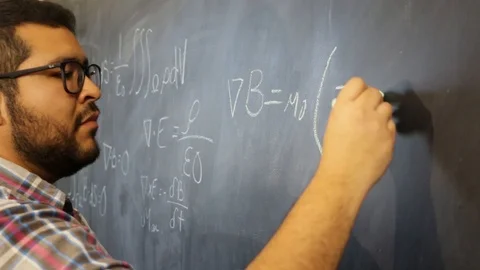 1/ε₀ ∭Ω ρdV
∇·E = ρ/ε0
∇B=0
∇×E=-∂B/∂t
∇B=μ0(